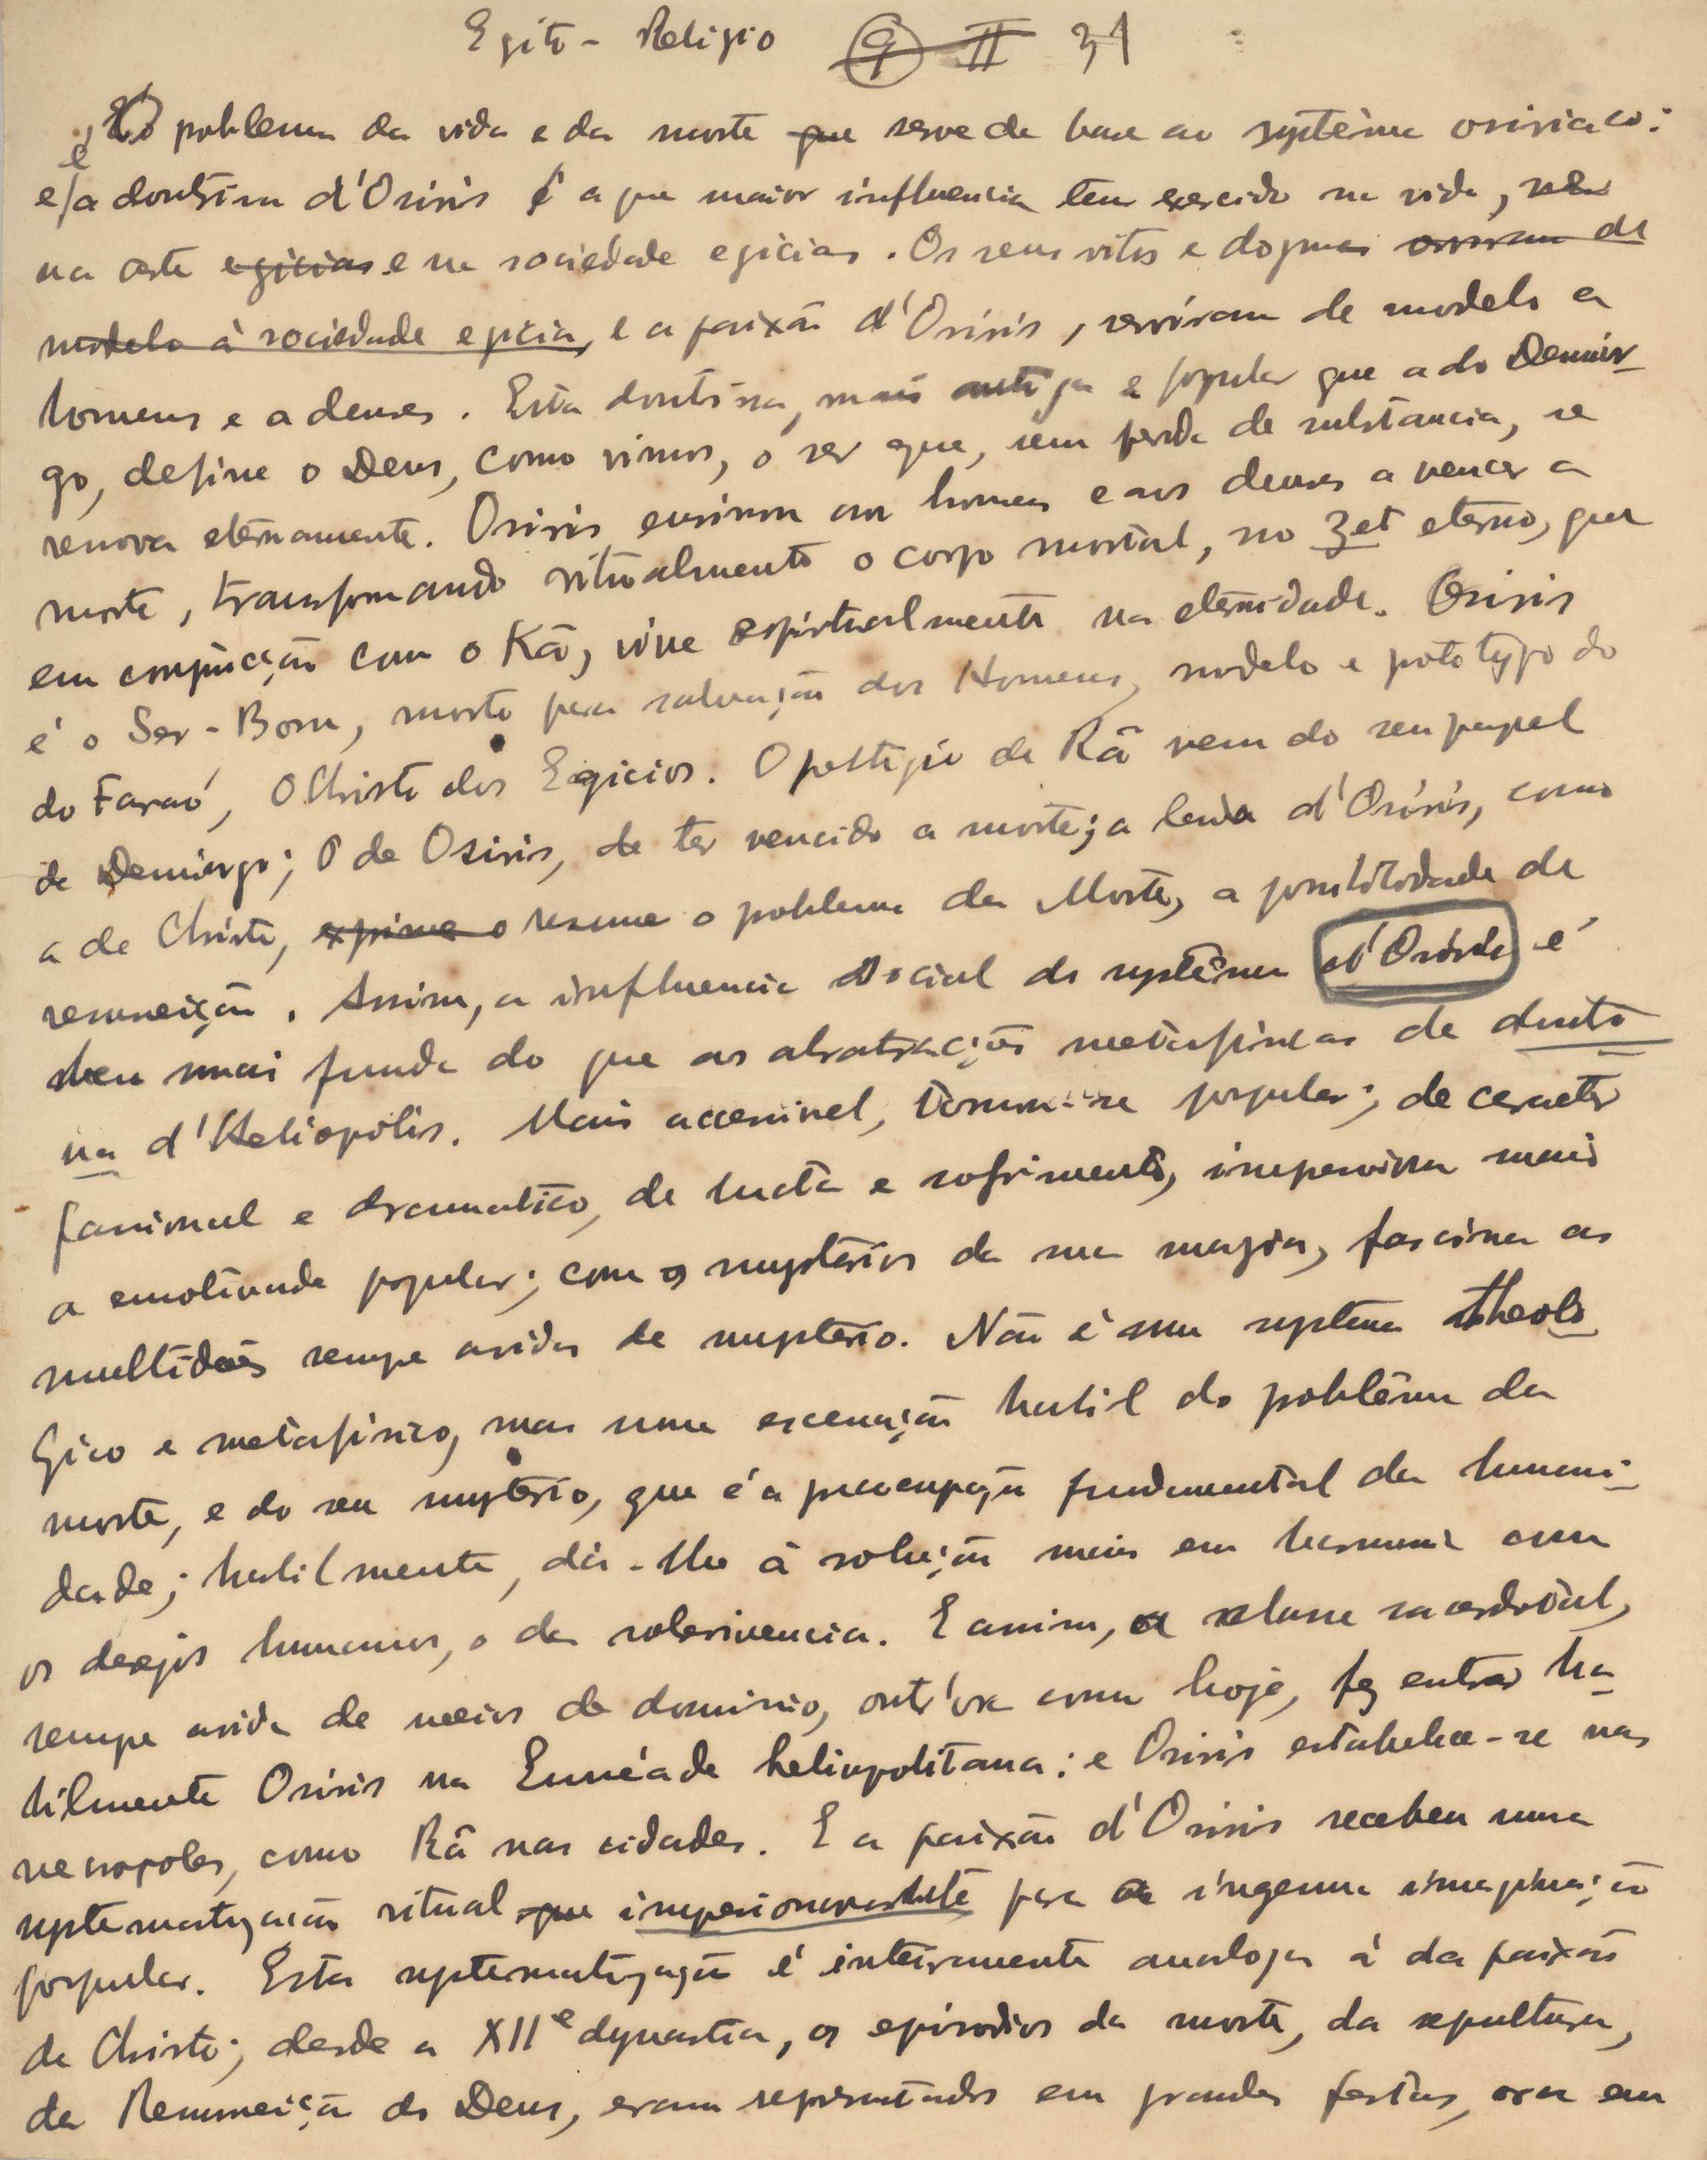 Egito - Religião 9 II 31
é o problema da vida e da morte que serve de base ao systêma osiriaco:
e/a doutrina d'Osiris é a que maior influencia tem exercido na vida,
na arte egicias e na sociedade egicias. Os seus ritos e dogmas serviram de
modelo à sociedade egicia, e a paixão d'Osiris, serviram de modelo a
homens e a deuses. Esta doutrina, mais antiga e popular que a do Demiur-
go, define o Deus, como vimos, o ser que, sem perda de substancia, se
renova eternamente. Osiris ensinou aos homens e aos deuses a vencer a
morte, transformando ritualmente o corpo mortal, no Zet eterno, que
em conjuncção com o Kâ, vive espiritualmente na eternidade. Osiris
é o Ser-Bom, morto para salvação dos Homens, modelo e prototypo do
do Faraó, O Christo dos Egicios. O prestigio de Râ vem do seu papel
de Demiurgo; O de Osiris, de ter vencido a morte; a lenda d'Osiris, como
a de Christo, exprime o resume o problema da Morte, a possibilidade de
ressurreição. Assim, a influencia social do systêma d'Osiris é
bem mais funda do que as abstracções metafisicas de doutri
na d'Heliopolis. Mais accessivel, torna-se popular; de caracter
passional e dramatico, de lucta e sofrimento, impressiona mais
a emotividade popular; com os mysterios da sua magia, fascina as
multidões sempre avidas de mysterio. Não é um systema theolo
gico e metafisico, mas uma encenação habil do problêma da
morte, e do seu mysterio, que é a preocupação fundamental da humani-
dade; habilmente, dá-lhe a solução mais em harmonia com
os desejos humanos, o da sobrevivencia. E assim, a classe sacerdotal,
sempre avida de meios de dominio, outr'ora como hoje, fez entrar ha
bilmente Osiris na Ennéade heliopolitana: e Osiris estabelece-se nas
necropoles, como Râ nas cidades. E a paixão d'Osiris recebeu uma
systematização ritual que impressionava para a ingenua imaginação
popular. Esta systematização é inteiramente analoga á da paixão
de Christo; desde a XIIe dynastia, os episodios da morte, da sepultura,
da Ressurreição do Deus, eram representados em grandes festas, ora em